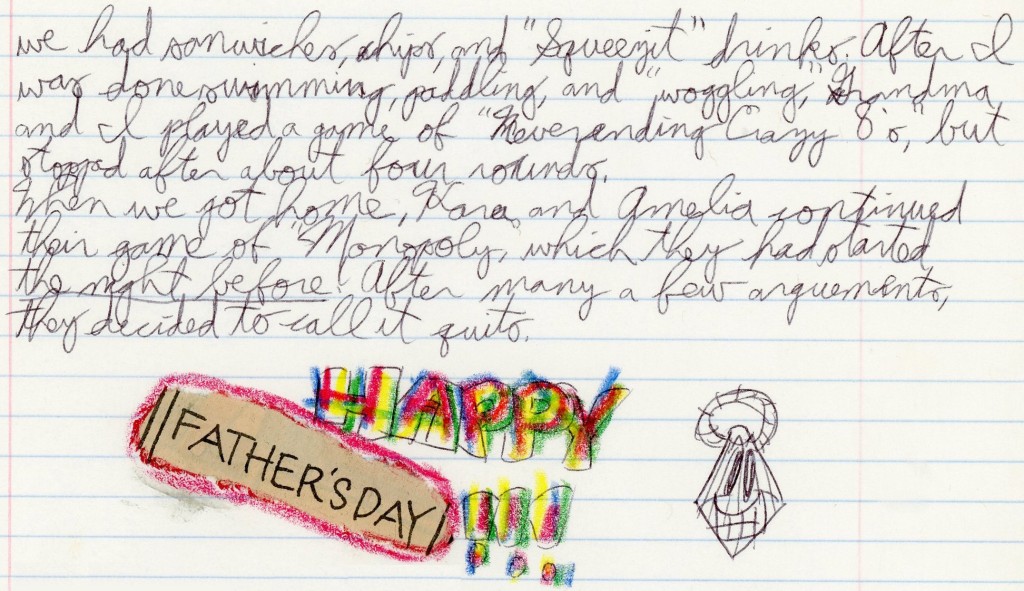 we had sanwiches, chips, and "Squeezit" drinks. After I
was done swimming, paddling, and "woggling," Grandma
and I played a game of "Neverending Crazy 8's," but
stopped after about four rounds.
When we got home, Kara and Amelia continued
their game of "Monopoly", which they had started
the night before. After many a few arguements,
they decided to call it quits.
HAPPY
FATHER'S DAY
!!!